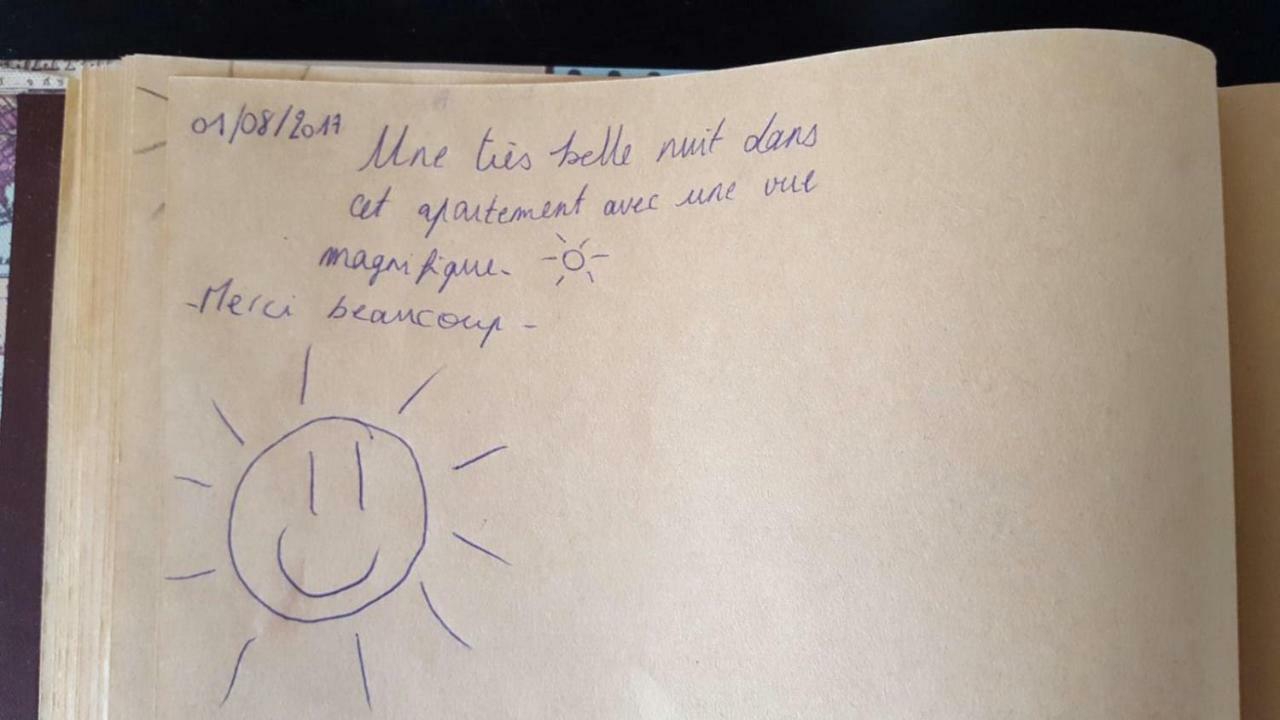 01/08/2017 Une très belle nuit dans
cet apartement avec une vue
magnifique.
- Merci beaucoup -